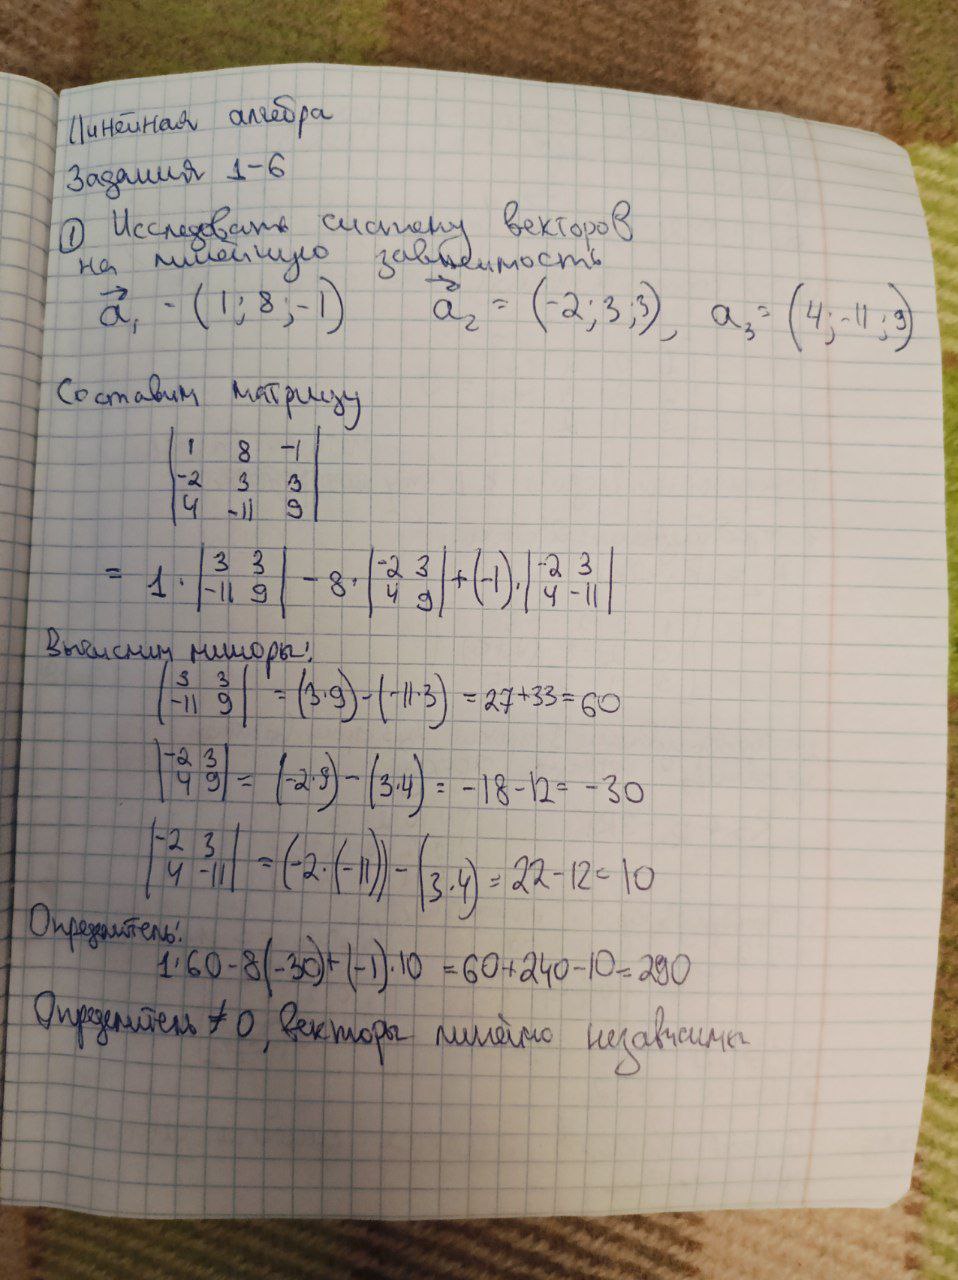 Линейная алгебра
Задания 1-6
① Исследовать систему векторов
на линейную зависимость
a₁ = (1; 8; -1) a₂ = (-2; 3; 3), a₃ = (4; -11; 9)
Составим матрицу
| 1 8 -1 |
| -2 3 3 |
| 4 -11 9 |
= 1 · | 3 3 ; -11 9 | - 8 · | -2 3 ; 4 9 | + (-1) · | -2 3 ; 4 -11 |
Вычислим миноры:
| 3 3 ; -11 9 | = (3·9) - (-11·3) = 27+33 = 60
| -2 3 ; 4 9 | = (-2·9) - (3·4) = -18-12 = -30
| -2 3 ; 4 -11 | = (-2·(-11)) - (3·4) = 22-12 = 10
Определитель:
1·60-8(-30)+(-1)·10 = 60+240-10 = 290
Определитель ≠ 0, векторы линейно независимы